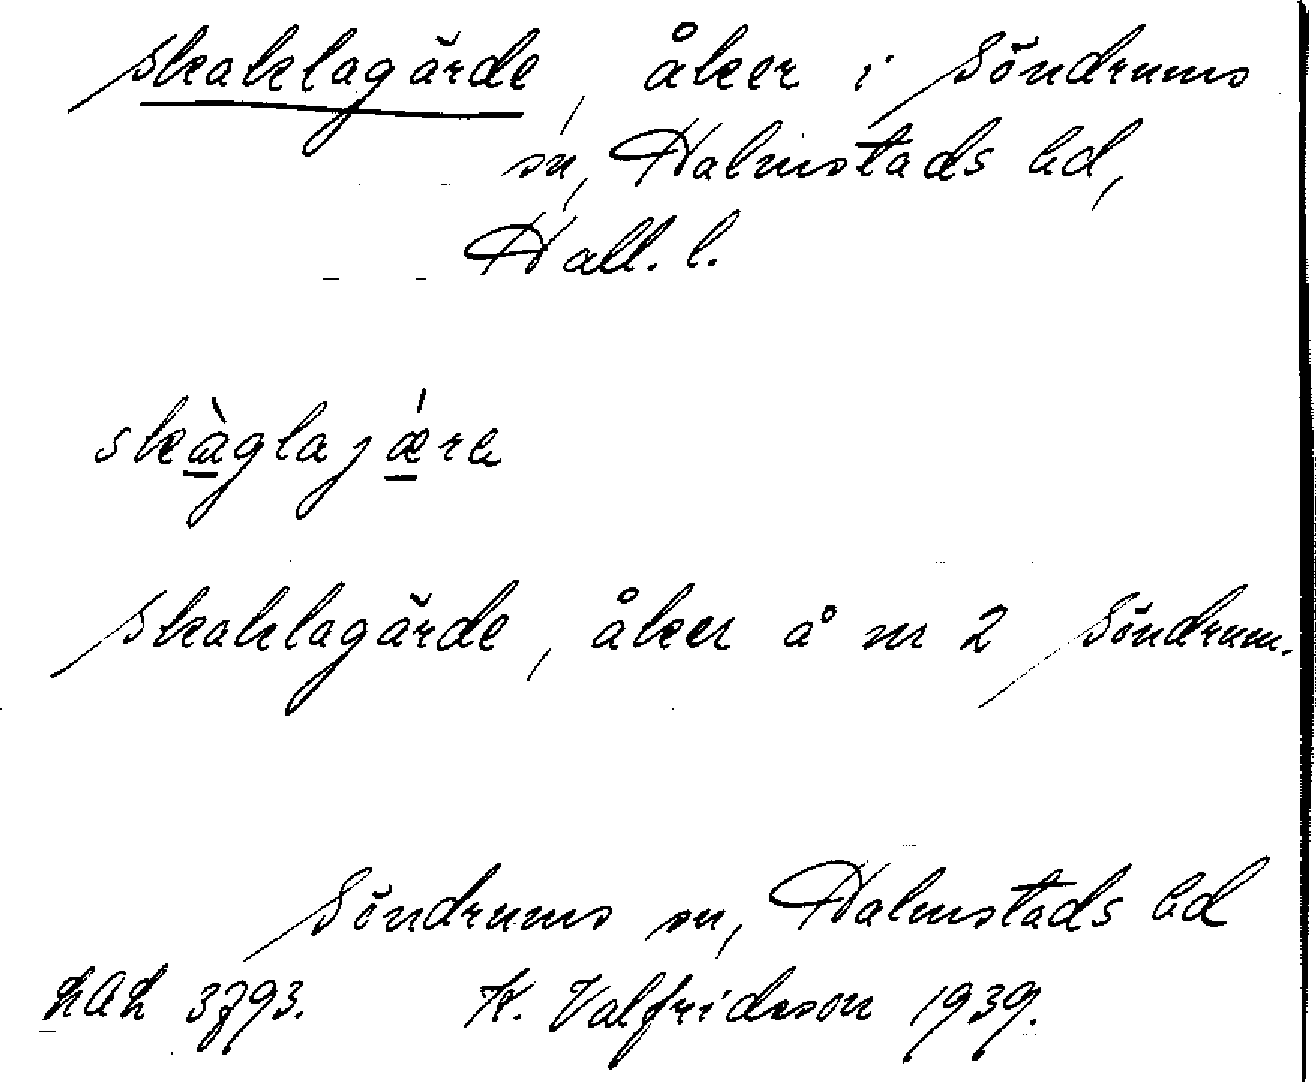 Skaklagärde, åker i Söndrums
sn, Halmstads hd,
Hall. l.
skàglajǽra
Skaklagärde, åker å nr 2 Söndrum.
Söndrums sn, Halmstads hd
LAL 3793. K. Valfridsson 1939.